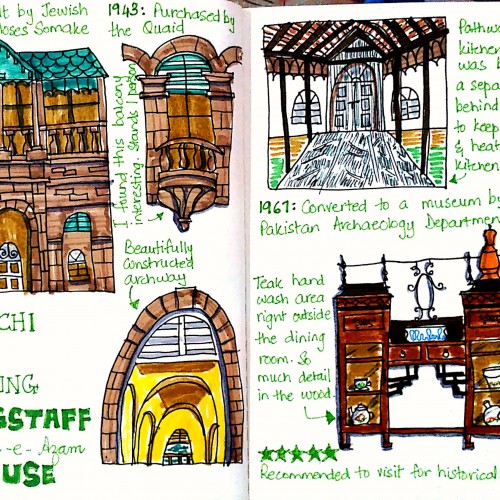 lt by Jewish
oses Somake
1943: Purchased by
the Quaid
I found this balcony
interesting. Stands 1 person
Beautifully
Constructed
archway
CHI
ING
GSTAFF
-e- Azam
USE
Pathway
kitchen
was b
a separ
behind
to keep
& heat
kitchen
1961: Converted to a museum by
Pakistan Archaeology Departmen
Teak hand
wash area
right outside
the dining
room. So
much detail
in the wood.
Recommended to visit for historical